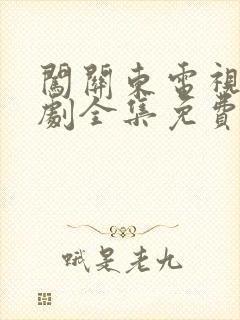 闖關東電視
劇全集免費
呱是老九